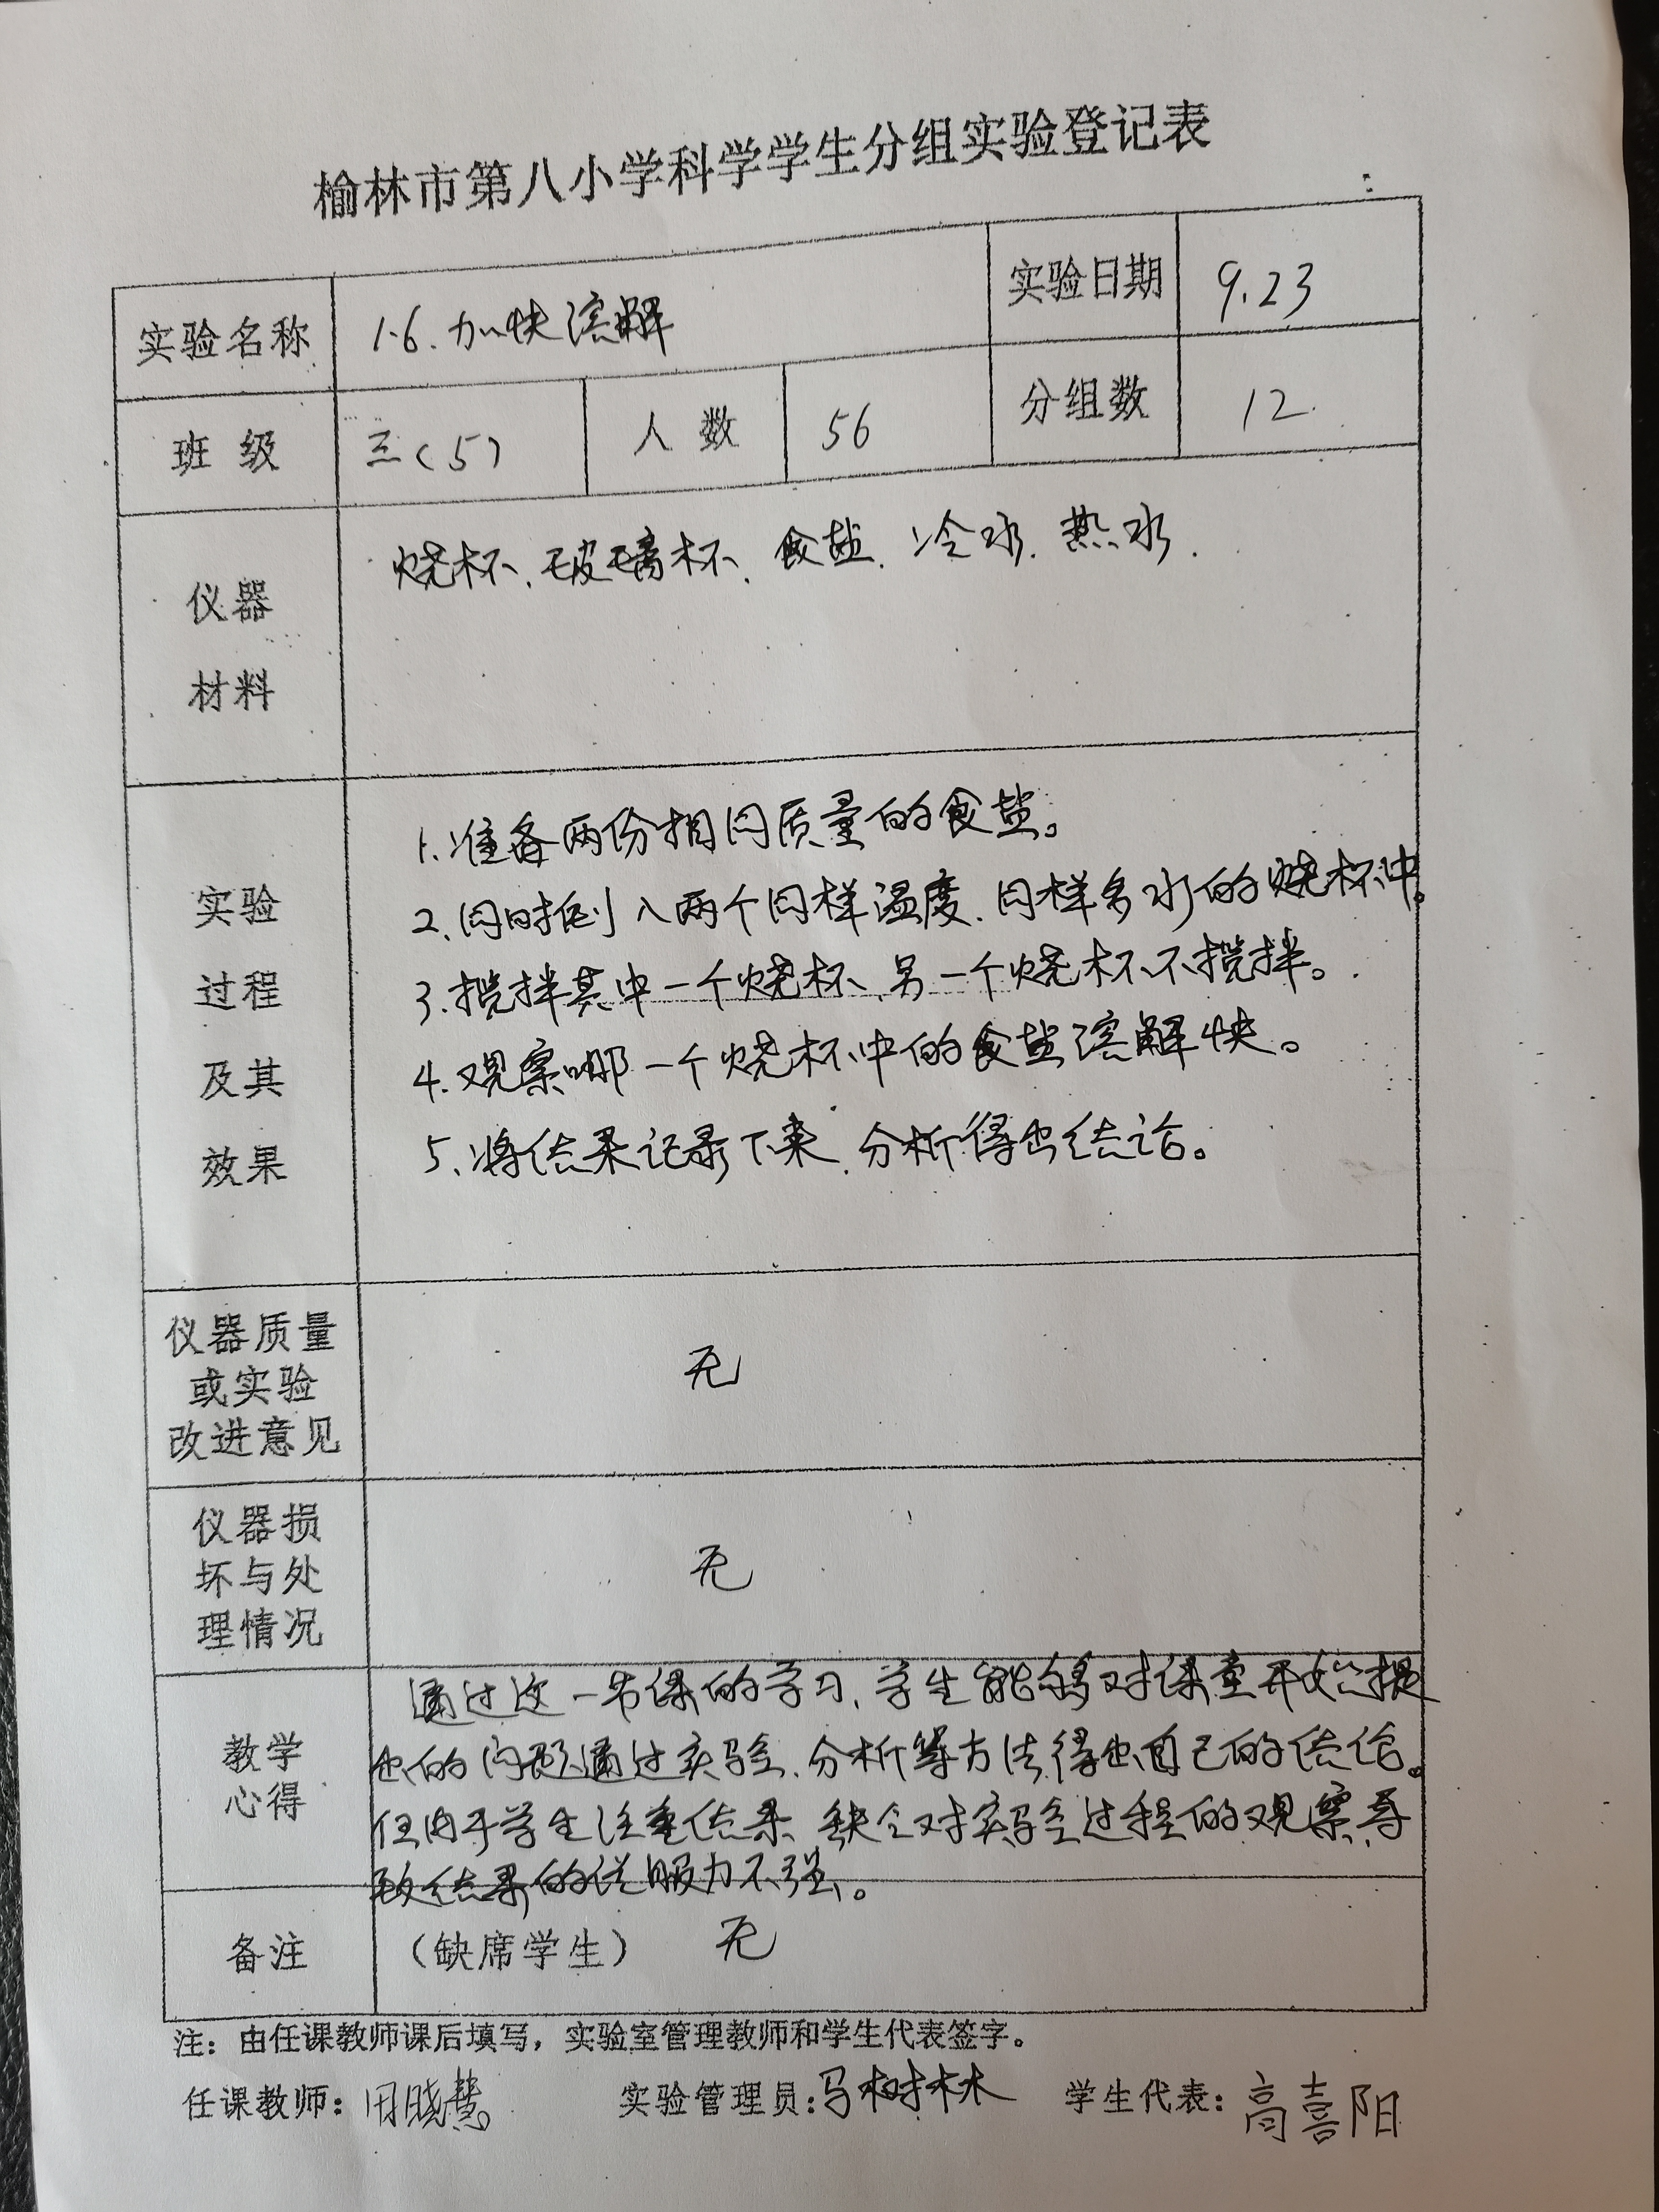 榆林市第八小学科学学生分组实验登记表
实验名称 1.6、加快溶解 实验日期 9.23
班 级 三(5) 人 数 56 分组数 12
仪器
材料
烧杯、玻璃杯、食盐、冷水、热水.
实验
过程
及其
效果
1、准备两份相同质量的食盐。
2、同时倒入两个同样温度、同样多水的烧杯中。
3、搅拌其中一个烧杯、另一个烧杯不搅拌。
4、观察哪一个烧杯中的食盐溶解快。
5、将结果记录下来、分析得出结论。
仪器质量
或实验
改进意见
无
仪器损
坏与处
理情况
无
教学
心得
通过这一节课的学习、学生能够对课堂开始提
出的问题通过实验、分析等方法得出自己的结论。
但由于学生注重结果、缺乏对实验过程的观察导
致结果的说服力不强。
备注 （缺席学生） 无
注：由任课教师课后填写，实验室管理教师和学生代表签字。
任课教师： 实验管理员：马树林 学生代表：高喜阳